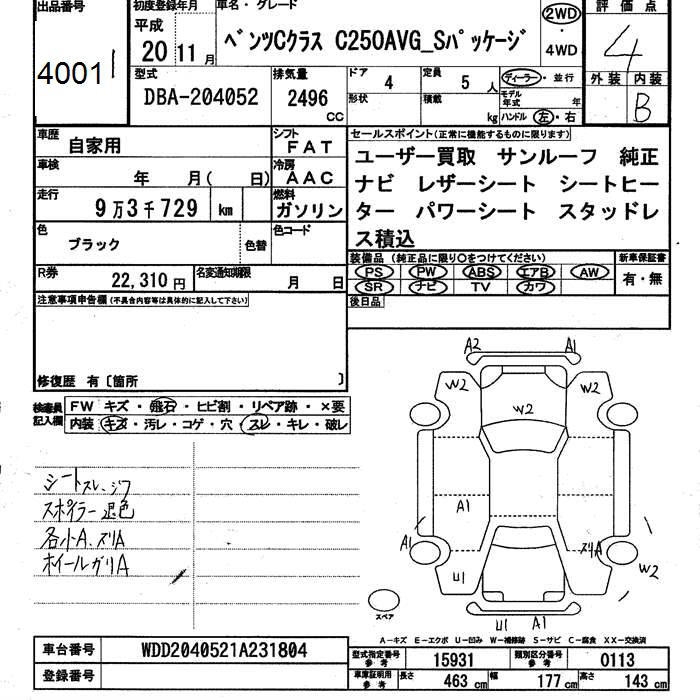 出品番号
4001
初度登録年月
平成
20 11月
車名・グレード
ベンツCクラス C250AVG_Sパッケージ
2WD
・
4WD
評価点
4
外装 内装
B
型式
DBA-204052
排気量
2496
CC
ドア 4
定員 5 人
形状
積載 kg
ディーラー・並行
モデル年式 年
ハンドル 左・右
車歴
自家用
シフト
FAT
車検
年 月( 日)
冷房
AAC
走行
9万3千729 km
燃料
ガソリン
色
ブラック
色替
色コード
R券
22,310円
名変通知期限
月 日
セールスポイント(正常に機能するものに限ります)
ユーザー買取 サンルーフ 純正
ナビ レザーシート シートヒー
ター パワーシート スタッドレ
ス積込
装備品(純正品に限り○をつけてください)
PS PW ABS エアB AW
SR ナビ TV カワ
新車保証書
有・無
後日品
注意事項申告欄(不具合内容等は具体的に記入して下さい)
修復歴 有〔箇所 〕
検査員記入欄
FW キズ・飛石・ヒビ割・リペア跡・×要
内装・キズ・汚レ・コゲ・穴・スレ・キレ・破レ
シートスレ、シワ
スポイラー退色
各小A、スリA
ホイールガリA
A2
A1
W2
W2
W2
A1
A1
スリA
W2
U1
U1
A1
スペア
A-キズ E-エクボ U-凹み W-補修跡 S-サビ C-腐食 XX-交換済
車台番号
WDD2040521A231804
登録番号
型式指定番号
参考
15931
類別区分番号
参考
0113
車庫証明用
参考
長さ 463 cm
幅 177 cm
高さ 143 cm